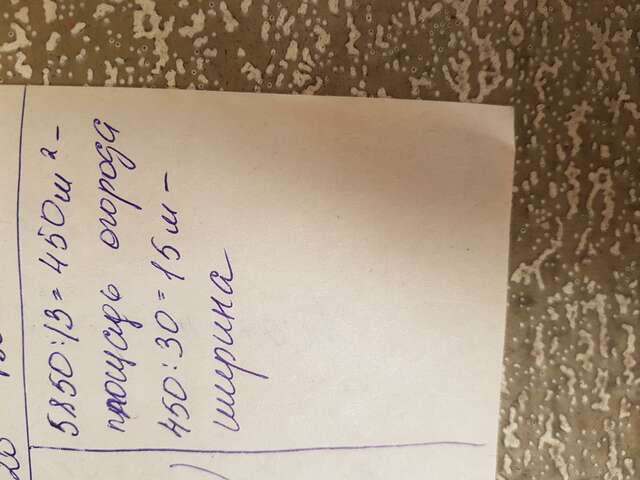 5850:13=450м²-
площадь огорода
450:30=15м-
ширина